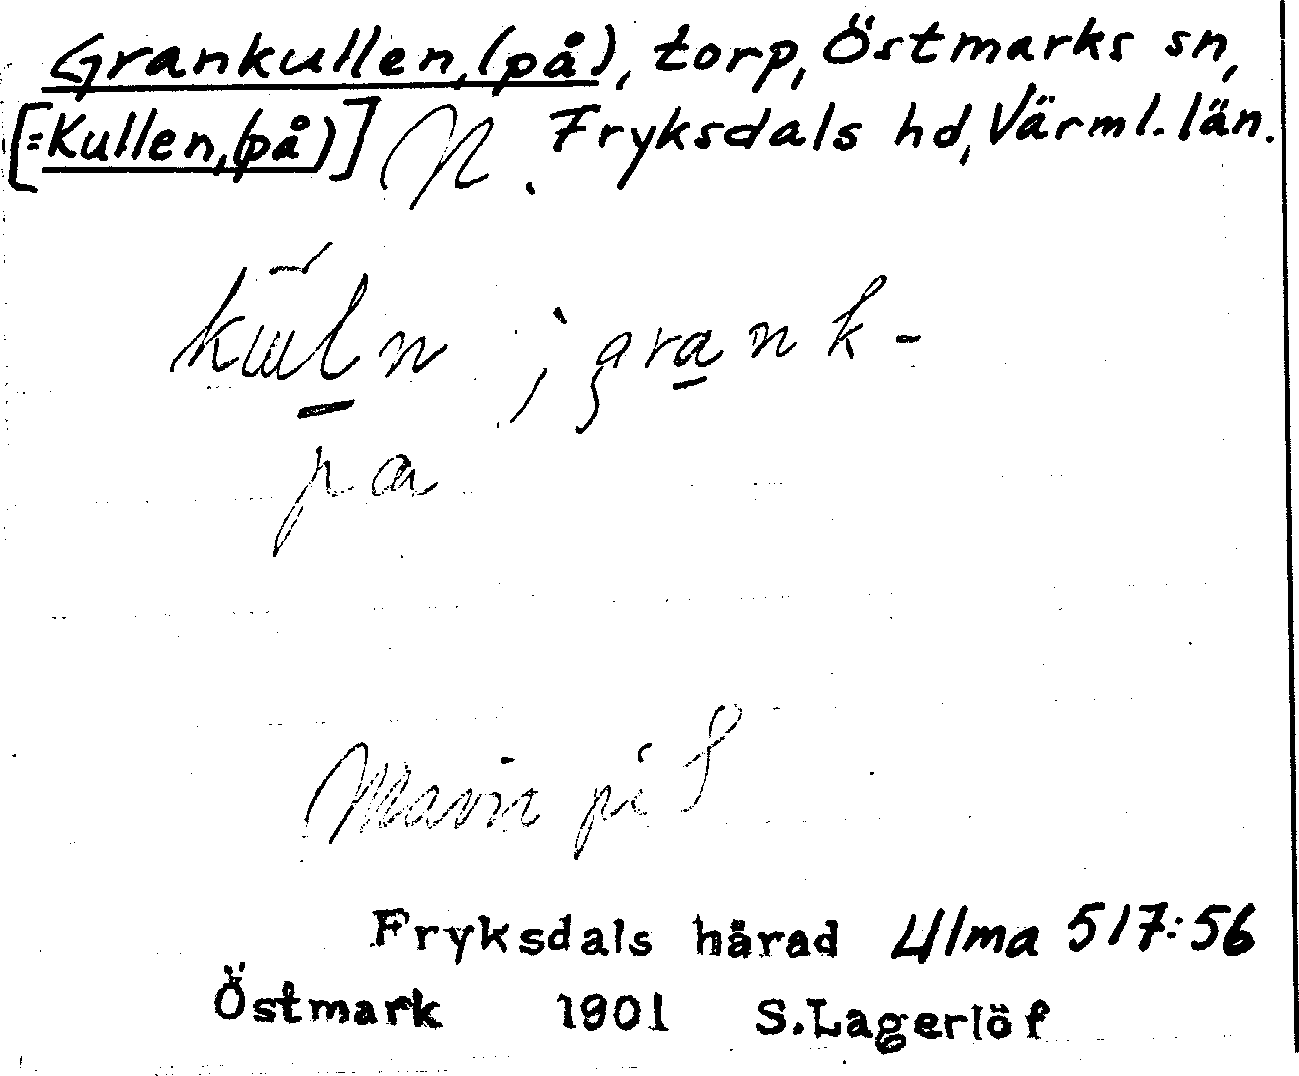 Grankullen, (på), torp, Östmarks sn,
[=Kullen, (på)] N. Fryksdals hd, Värml. län.
kuln ; grank-
pa
på
Fryksdals härad Ulma 517:56
Östmark 1901 S. Lagerlöf